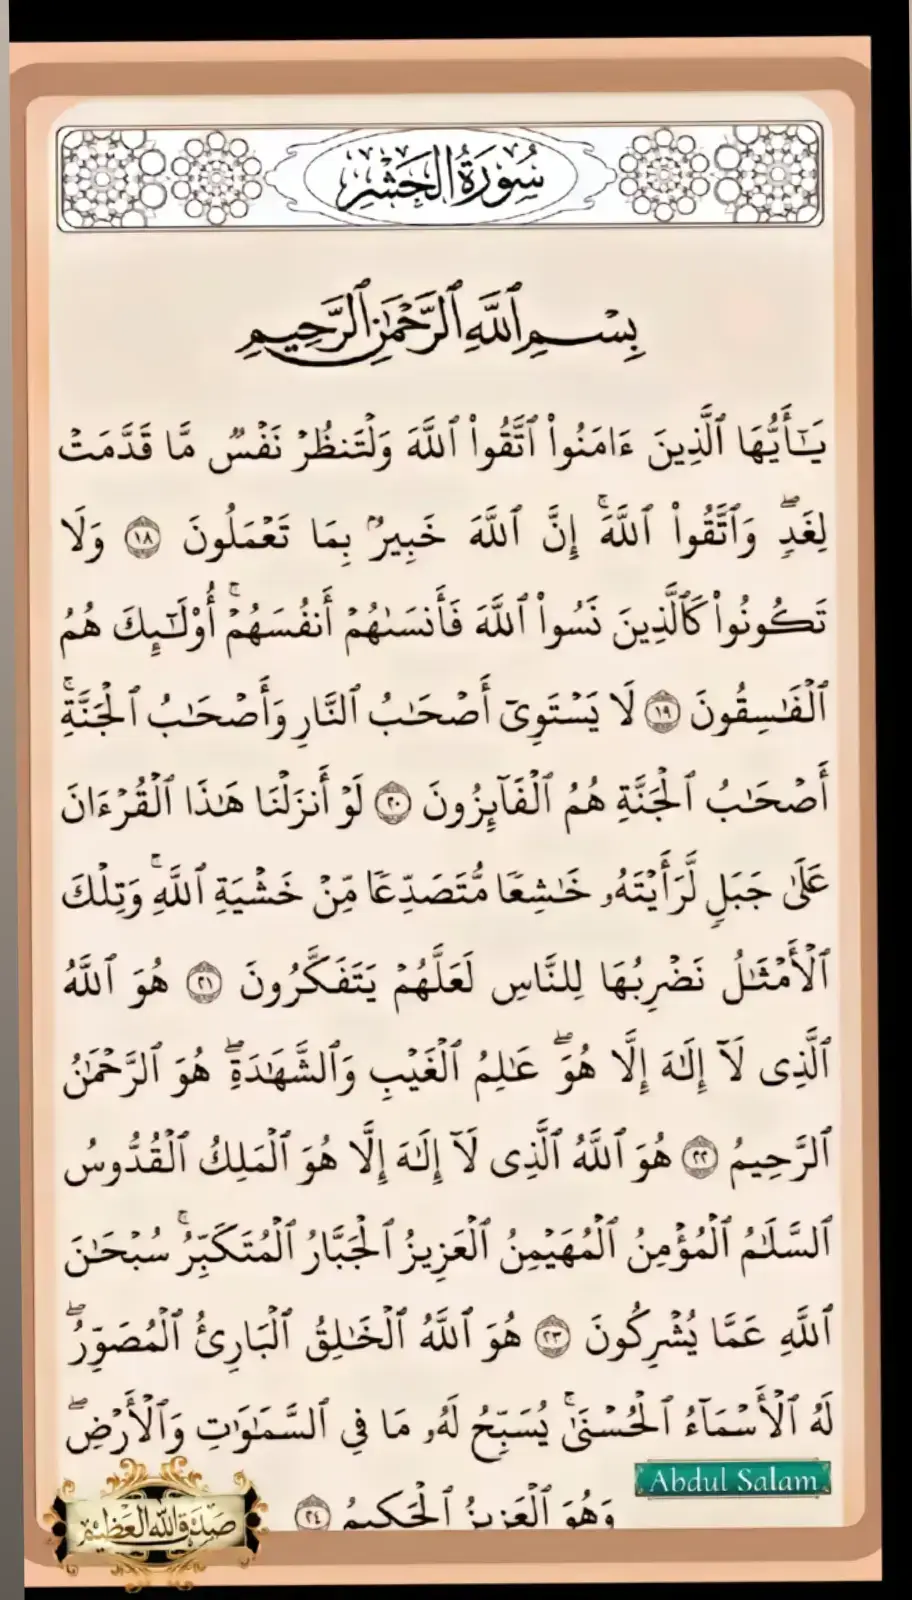 سُورَةُ الحَشْرِ
بِسْمِ ٱللَّهِ ٱلرَّحْمَٰنِ ٱلرَّحِيمِ
يَٰٓأَيُّهَا ٱلَّذِينَ ءَامَنُوا۟ ٱتَّقُوا۟ ٱللَّهَ وَلْتَنظُرْ نَفْسٌ مَّا قَدَّمَتْ
لِغَدٍۖ وَٱتَّقُوا۟ ٱللَّهَۚ إِنَّ ٱللَّهَ خَبِيرٌۢ بِمَا تَعْمَلُونَ ١٨ وَلَا
تَكُونُوا۟ كَٱلَّذِينَ نَسُوا۟ ٱللَّهَ فَأَنسَىٰهُمْ أَنفُسَهُمْۚ أُو۟لَٰٓئِكَ هُمُ
ٱلْفَٰسِقُونَ ١٩ لَا يَسْتَوِىٓ أَصْحَٰبُ ٱلنَّارِ وَأَصْحَٰبُ ٱلْجَنَّةِۚ
أَصْحَٰبُ ٱلْجَنَّةِ هُمُ ٱلْفَآئِزُونَ ٢٠ لَوْ أَنزَلْنَا هَٰذَا ٱلْقُرْءَانَ
عَلَىٰ جَبَلٍ لَّرَأَيْتَهُۥ خَٰشِعًا مُّتَصَدِّعًا مِّنْ خَشْيَةِ ٱللَّهِۚ وَتِلْكَ
ٱلْأَمْثَٰلُ نَضْرِبُهَا لِلنَّاسِ لَعَلَّهُمْ يَتَفَكَّرُونَ ٢١ هُوَ ٱللَّهُ
ٱلَّذِى لَآ إِلَٰهَ إِلَّا هُوَۖ عَٰلِمُ ٱلْغَيْبِ وَٱلشَّهَٰدَةِۖ هُوَ ٱلرَّحْمَٰنُ
ٱلرَّحِيمُ ٢٢ هُوَ ٱللَّهُ ٱلَّذِى لَآ إِلَٰهَ إِلَّا هُوَ ٱلْمَلِكُ ٱلْقُدُّوسُ
ٱلسَّلَٰمُ ٱلْمُؤْمِنُ ٱلْمُهَيْمِنُ ٱلْعَزِيزُ ٱلْجَبَّارُ ٱلْمُتَكَبِّرُۚ سُبْحَٰنَ
ٱللَّهِ عَمَّا يُشْرِكُونَ ٢٣ هُوَ ٱللَّهُ ٱلْخَٰلِقُ ٱلْبَارِئُ ٱلْمُصَوِّرُۖ
لَهُ ٱلْأَسْمَآءُ ٱلْحُسْنَىٰۚ يُسَبِّحُ لَهُۥ مَا فِى ٱلسَّمَٰوَٰتِ وَٱلْأَرْضِۖ
وَهُوَ ٱلْعَزِيزُ ٱلْحَكِيمُ ٢٤
Abdul Salam
صَدَقَ اللَّه العَظِيم